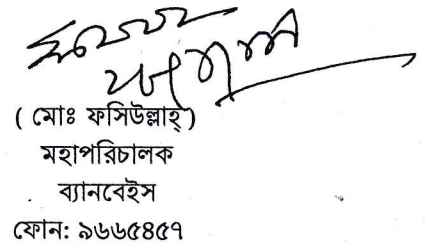 ( মোঃ ফসিউল্লাহ্ )
মহাপরিচালক
ব্যানবেইস
ফোন: ৯৬৬৫৪৫৭